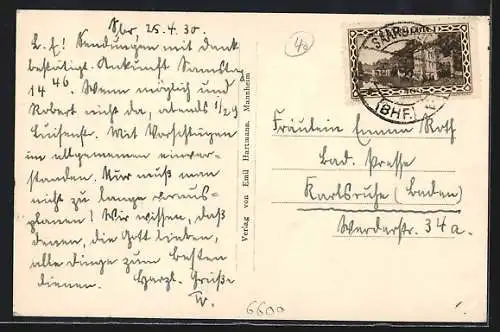 Sbr, 25.4.30
L. E! Sendungen mit Dank
bestätigt. Ankunft Samstag
14 46. Wenn möglich und
Robert nicht da, abends 1/2 9
Luisenstr. Mit Vorschlägen
im allgemeinen einver-
standen. Nur muß man
nicht zu lange voraus-
planen! Wir wissen, daß
denen, die Gott lieben,
alle Dinge zum besten
dienen. Herzl. Grüße
W.
Verlag von Emil Hartmann, Mannheim
40
SAARBR
(BHF.)
Fräulein Emma Roth
Bad. Presse
Karlsruhe (Baden)
Werderstr. 34a.
6600